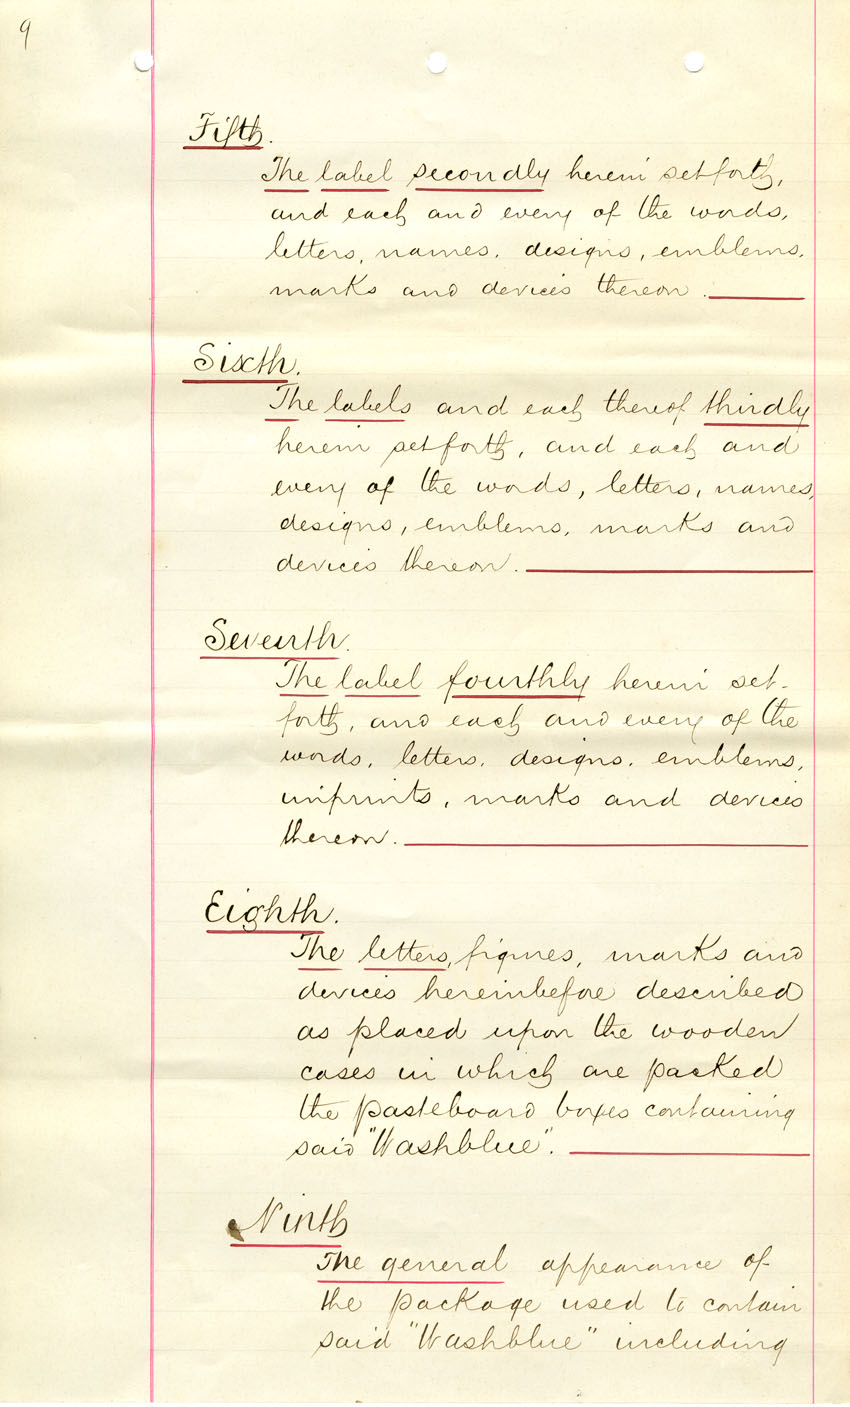 9
Fifth.
The label secondly herein set forth,
and each and every of the words,
letters, names, designs, emblems,
marks and devices thereon.
Sixth.
The labels and each thereof thirdly
herein set forth, and each and
every of the words, letters, names,
designs, emblems, marks and
devices thereon.
Seventh.
The label fourthly herein set-
forth, and each and every of the
words, letters, designs, emblems,
imprints, marks and devices
thereon.
Eighth.
The letters, figures, marks and
devices hereinbefore described
as placed upon the wooden
cases in which are packed
the pasteboard boxes containing
said "Washblue".
Ninth
The general appearance of
the package used to contain
said "Washblue" including